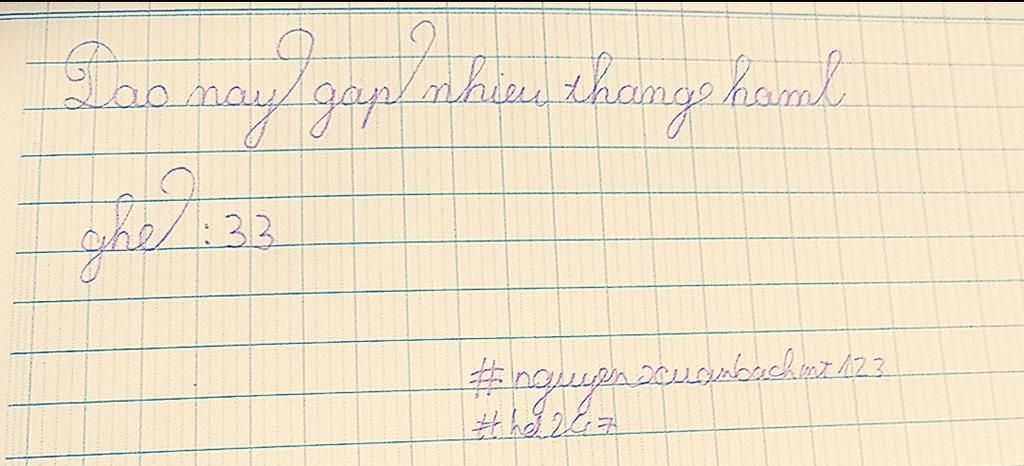 Dao nay gap nhieu thang haml
ghe :33
#nguyenxuanbachmt123
#hd247